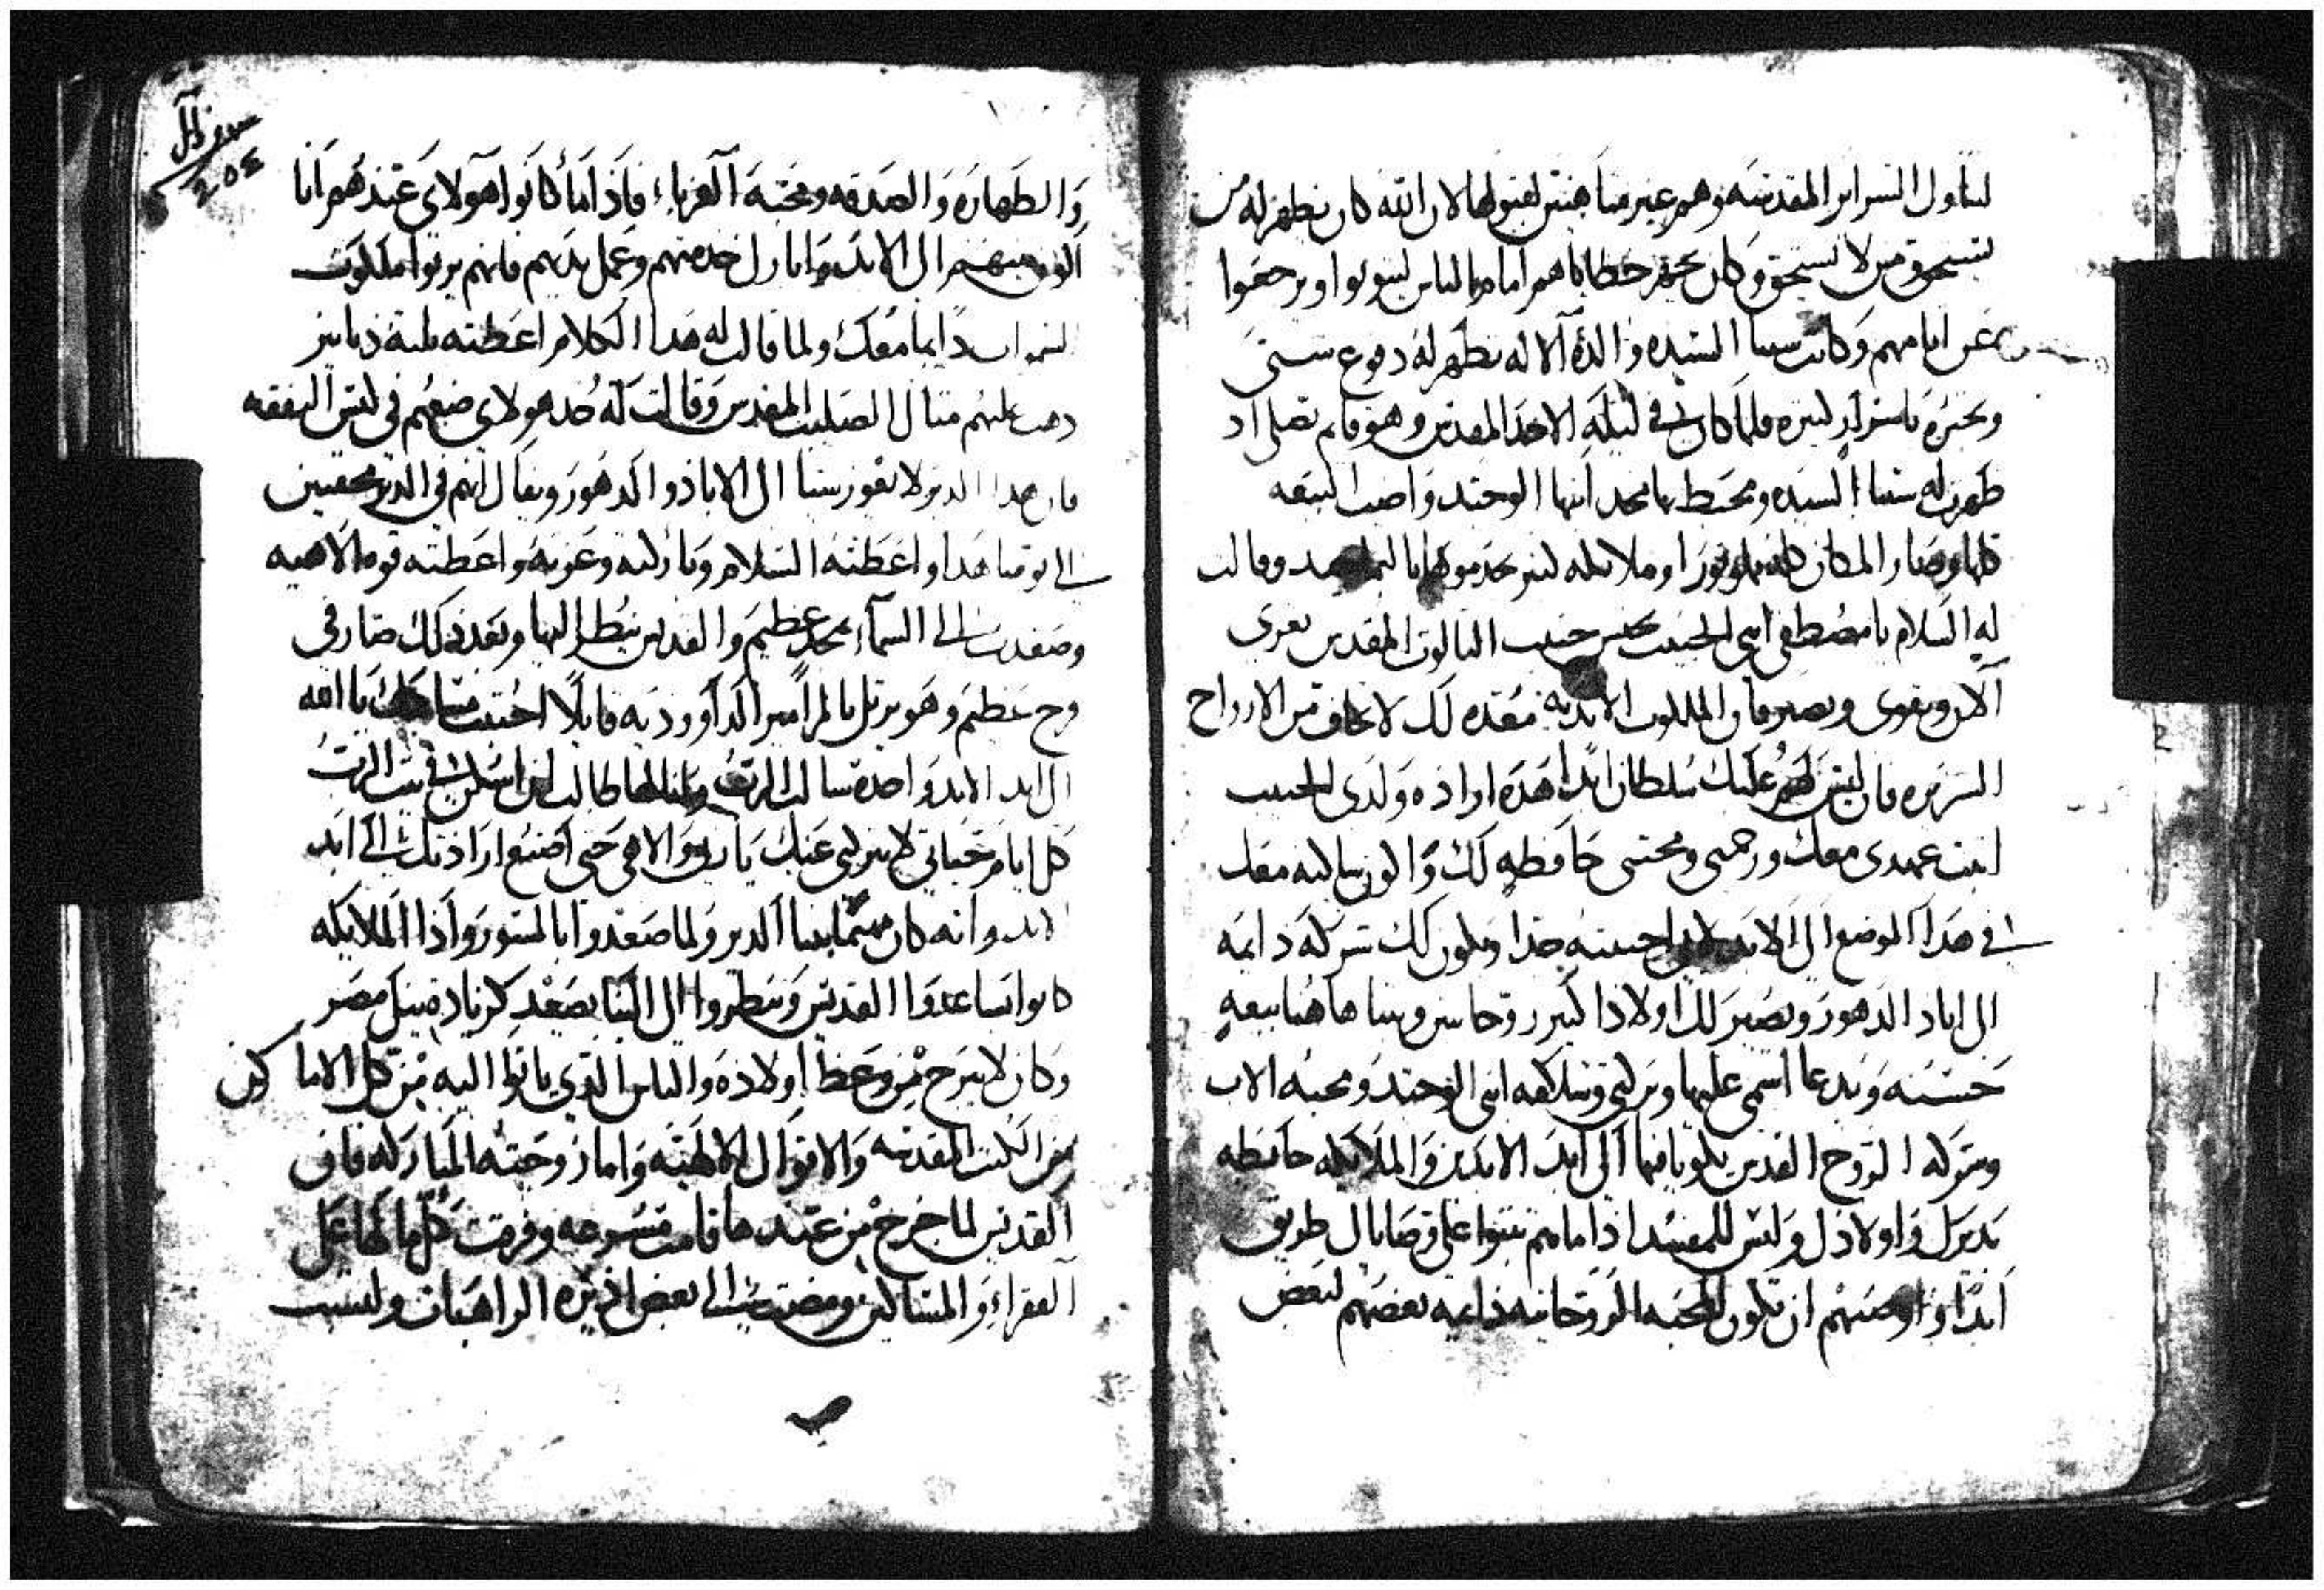 لتناول السراير المقدسه وهم غير متاهبين لقبولها لان الله كان يظهر له من
يستحق من لا يستحق وكان يحقر خطاياهم امام الناس ليتوبوا ويرجعوا
عن اثامهم وكانت ستنا السيده والدة الاله تظهر له دفوع ستى
وتخبره باسرار كثيره فلما كان في ليلة الاحد المقدس وهو قايم يصلي اذ
ظهرت له ستنا السيده ومحيط بها مجد ابنها الوحيد واضت البيعه
كلها وصار المكان كله مملو نورا وملايكه كثير يخدموها وقالت
له السلام يا مصطفى ابني الحبيب يحنس حبيب الثالوث المقدس تعزى
الان وتقوى وتصبر فان الملكوت الابديه معده لك لا تخاف من الارواح
الشريره فان ليس لهم عليك سلطان ابدا هذه اراده ولدي الحبيب
اثبت عهدي معك ورحمتي ومحبتي حافظه لك واكون ساكنه معك
في هذا الموضع الى الابد حسنه جدا وتكون لك شركه دايمه
الى اباد الدهور ويصير لك اولادا كثير روحانيين ويبنا هاهنا بيعه
حسنه ويدعا اسمي عليها وبركتي وسلامه ابني الوحيد ومحبه الاب
وشركه الروح القدس يكونوا فيها الى ابد الابدين والملايكه حافظه
ديرك واولادك وليس للمفسد اذا ما هم ثبتوا على وصاياك طريق
ابدا واوصيهم ان تكون المحبه الروحانيه دايمه بعضهم لبعض
والطهاره والصدقه ومحبة الغرباء فاذا ما كانوا هولاى عندهم انا
اكون معهم الى الابد وابارك خدمتهم وعمل يديهم فانهم يرثوا ملكوت
السموات دايما معك ولما قالت له هدا الكلام اعطته ثلثة دنانير
دهب عليهم مثال الصليب المقدس وقالت له خد هولاى ضعهم في كيس النفقه
فان هدا الدير لا يعوز شيا الى الاباد والدهور ويقال انهم في الدير مخفيين
الى يومنا هدا واعطته السلام وباركته وعزته واعطته قوه الاهيه
وصعدت الى السماء بمجد عظيم والقديس ينظر اليها وبعد ذلك صار في
فرح عظيم وهو يرتل بالمزامير الداووديه قايلا احببت مساكنك يا الله
الى ابد الابد واحدة سالت الرب واياها طالب ان اسكن في بيت الرب
كل ايام حياتي لا تتركني عنك يا ربي والاهي حتى اصنع ارادتك الى ابد
الابد وانه كان مهتما ببنا الدير ولما صعدوا بالستور واذا الملايكه
كانوا يساعدوا القديس وينظروا الى البنا يصعد كزيادة نيل مصر
وكان لا يبرح من وعظ اولاده والناس الذي ياتوا اليه من كل الاماكن
من الكتب المقدسه والاقوال الالهيه واما زوجته المباركه فان
القديس لما خرج من عندها قامت مسرعه وفرقت كل مالها على
الفقراء والمساكين ومضت الى بعض اديره الراهبات ولبست